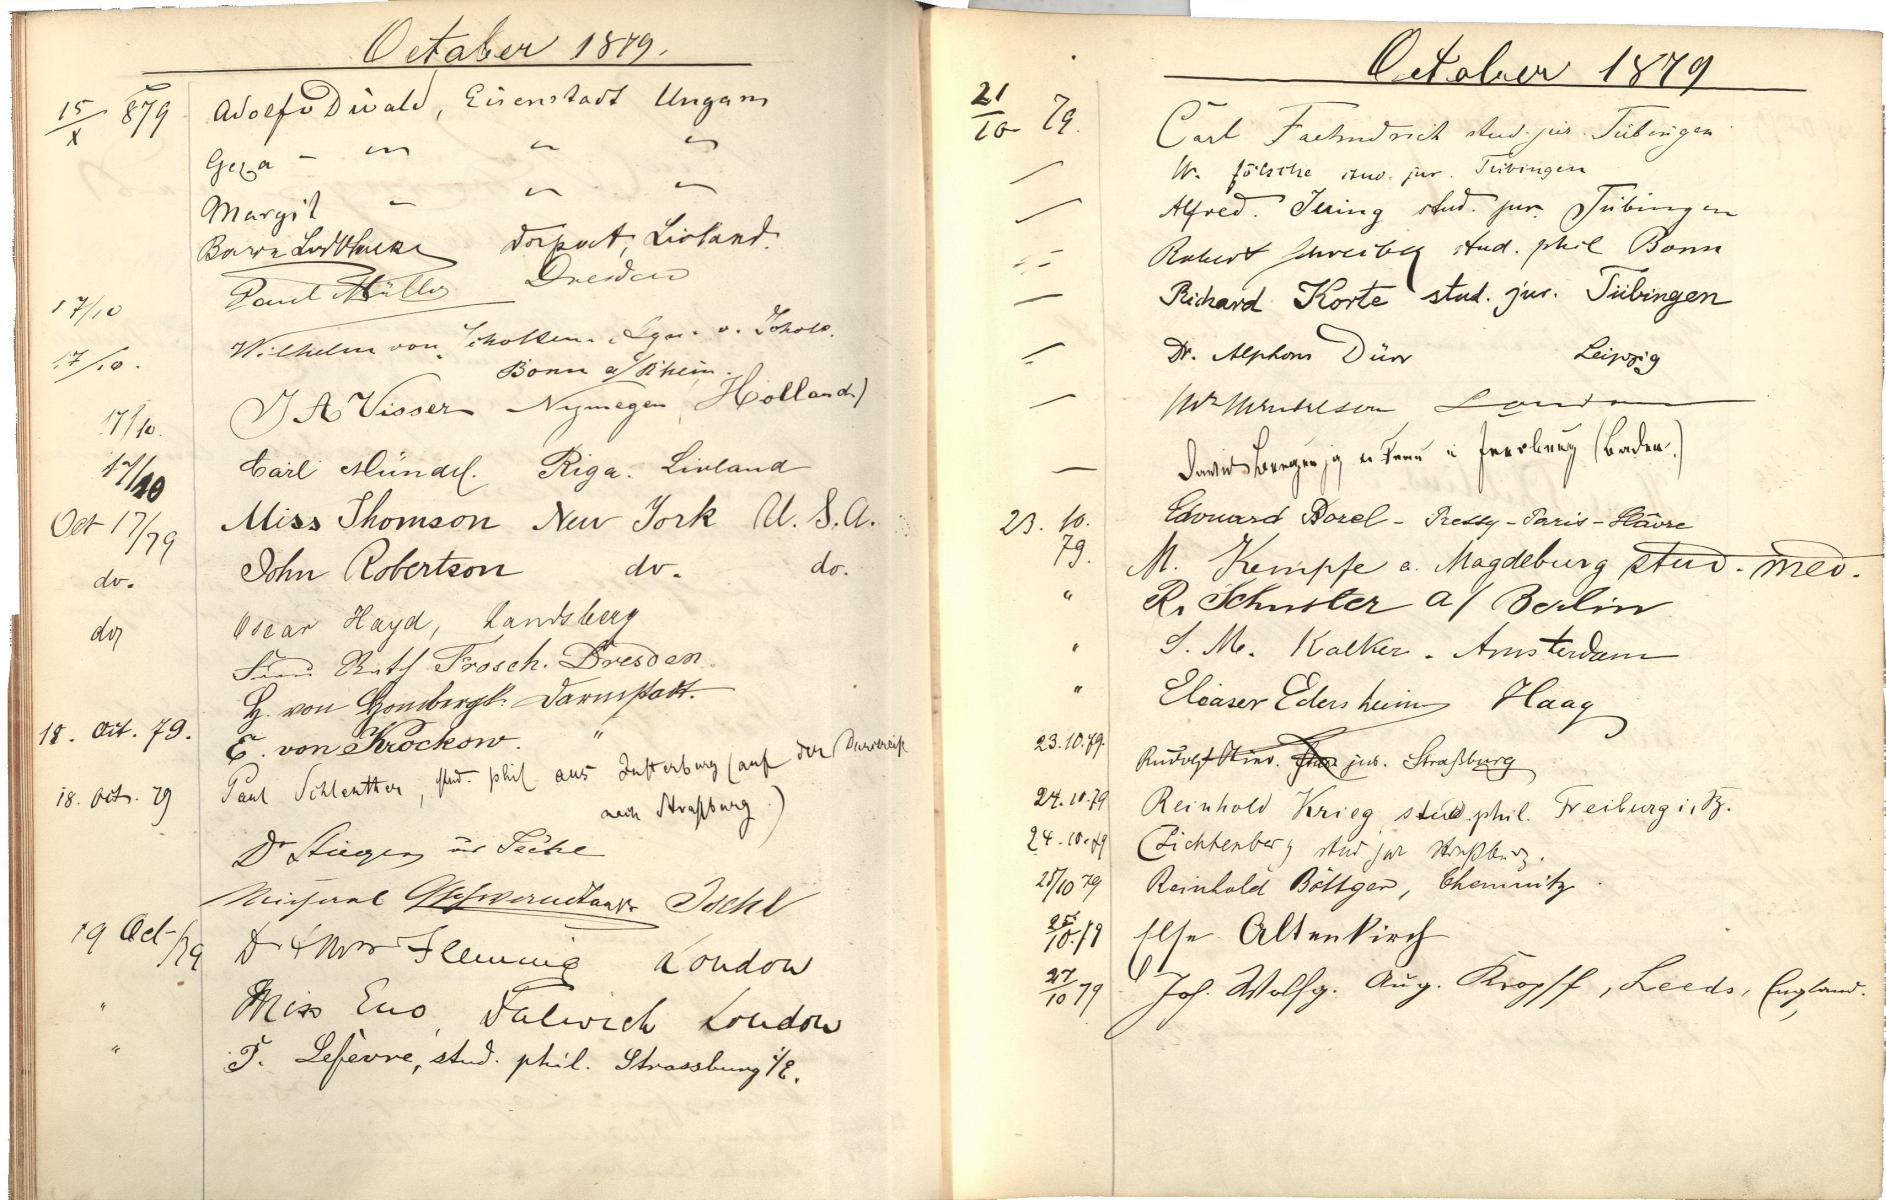 October 1879.
15/X 879 Adolf v Diwald, Eisenstadt Ungarn
Geza - " " "
Margit - " "
Dorpat, Livland.
17/10 Paul Müller Dresden
17/10. Wilhelm von
Bonn a/Rhein.
17/10. J A Visser Nymegen Holland)
17/10 Carl Mündel. Riga. Livland
Oct 17/79 Miss Thomson New York U.S.A.
do. John Robertson do. do.
do Oscar Hayd, Landsberg
Frosch. Dresden.
H. von Hombergk. Darmstadt.
18. Oct. 79. E. von Krockow. "
18. Oct. 79 Paul Schlenther, stud. phil aus Insterburg (auf der Durchreise
nach Straßburg.)
Dr
Ischl
19 Oct/79 Dr & Mrs Fleming London
" Miss Eno, Dulwich London
" T. Lefèvre, stud. phil. Strassburg i/E.
October 1879
21/10 79. Carl stud. jur. Tübingen
— W. Fölsche stud. jur. Tübingen
— Alfred. Jering stud. jur. Tübingen
= Robert Schreiber stud. phil Bonn
— Richard Korte stud. jur. Tübingen
= Dr. Alphons Dürr Leipzig
— Mr Mendelson London
— David u Frau (Baden.)
23. 10. 79. Edouard Borel - Pressy - Paris - Hâvre
M. Kempfe a. Magdeburg stud. med.
" R. Schuster a/ Berlin
" S. M. Kalker. Amsterdam
" Eleaser Edersheim Haag
23.10.79. Rudolf jur. Straßburg
24.10.79 Reinhold Krieg stud. phil. Freiburg i, B.
24.10.79 Lichtenberg stud jur Straßburg.
25/10 79 Reinhold Böttger, Chemnitz
25/10.79 Else Altenkirch
27/10 79 Joh. Wolfg. Aug. Kropff, Leeds, England.